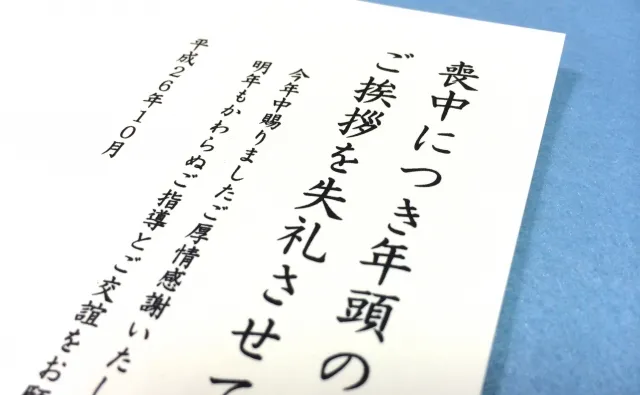 喪中につき年頭の
ご挨拶を失礼させて
今年中賜りましたご厚情感謝いたし
明年もかわらぬご指導とご交誼をお
平成26年10月